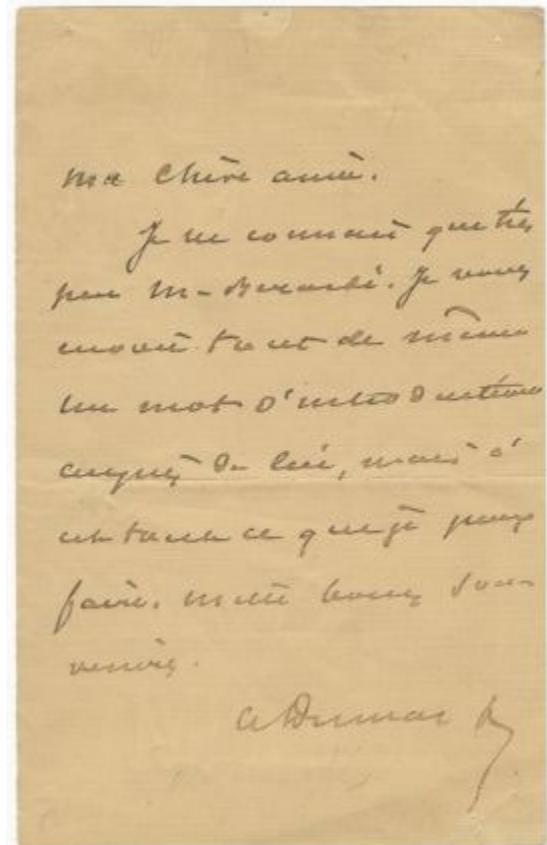 Ma chère amie.
Je ne connais que très
peu M. Berardi. Je vous
envoie tout de même
un mot d'introduction
auprès de lui, mais c'
est tout ce que je peux
faire. Mille bons sou-
venirs.
A Dumas f